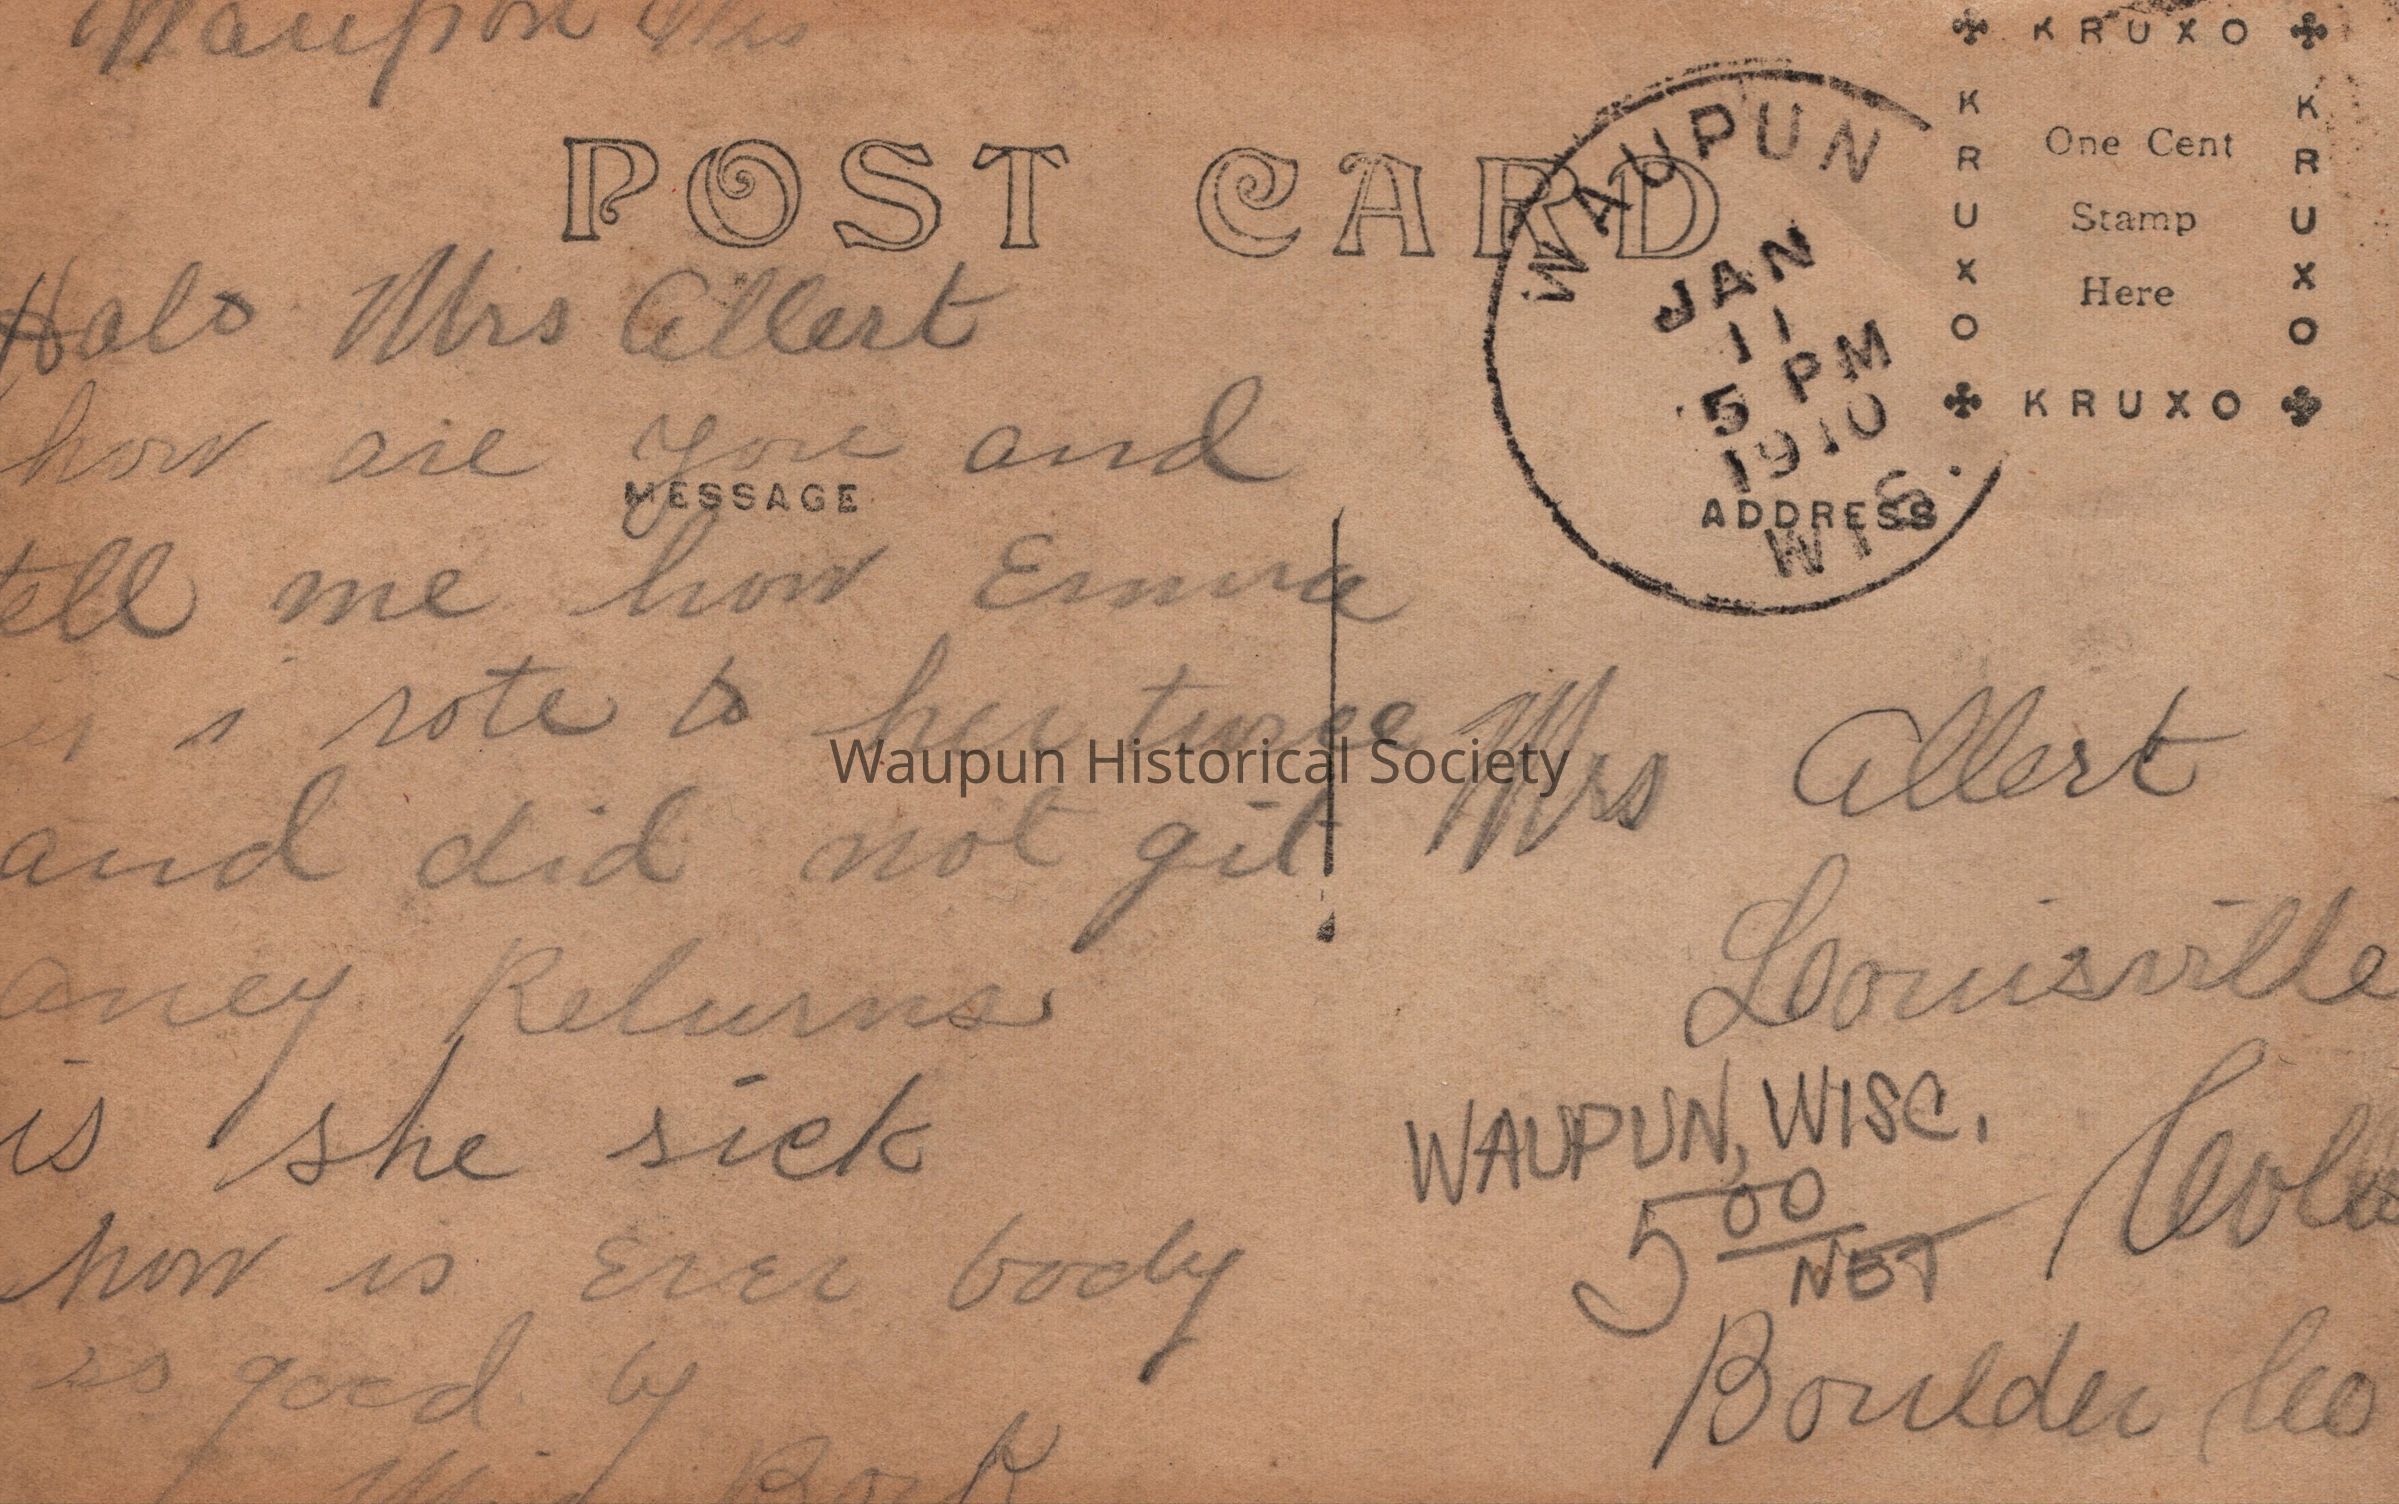 Waupon Wis
POST CARD
Halo Mrs Allert
how are you and
tell me how Emma
is i rote to her twice
and did not git
aney Returns
is she sick
how is Ever body
good by
Bock
MESSAGE
WAUPUN
JAN
11
5 PM
1910
WIS.
KRUXO
KRUXO
KRUXO
KRUXO
One Cent
Stamp
Here
ADDRESS
Mrs Allert
Louisville
Colo
Boulder Co
WAUPUN, WISC.
5 00
NET
Waupun Historical Society